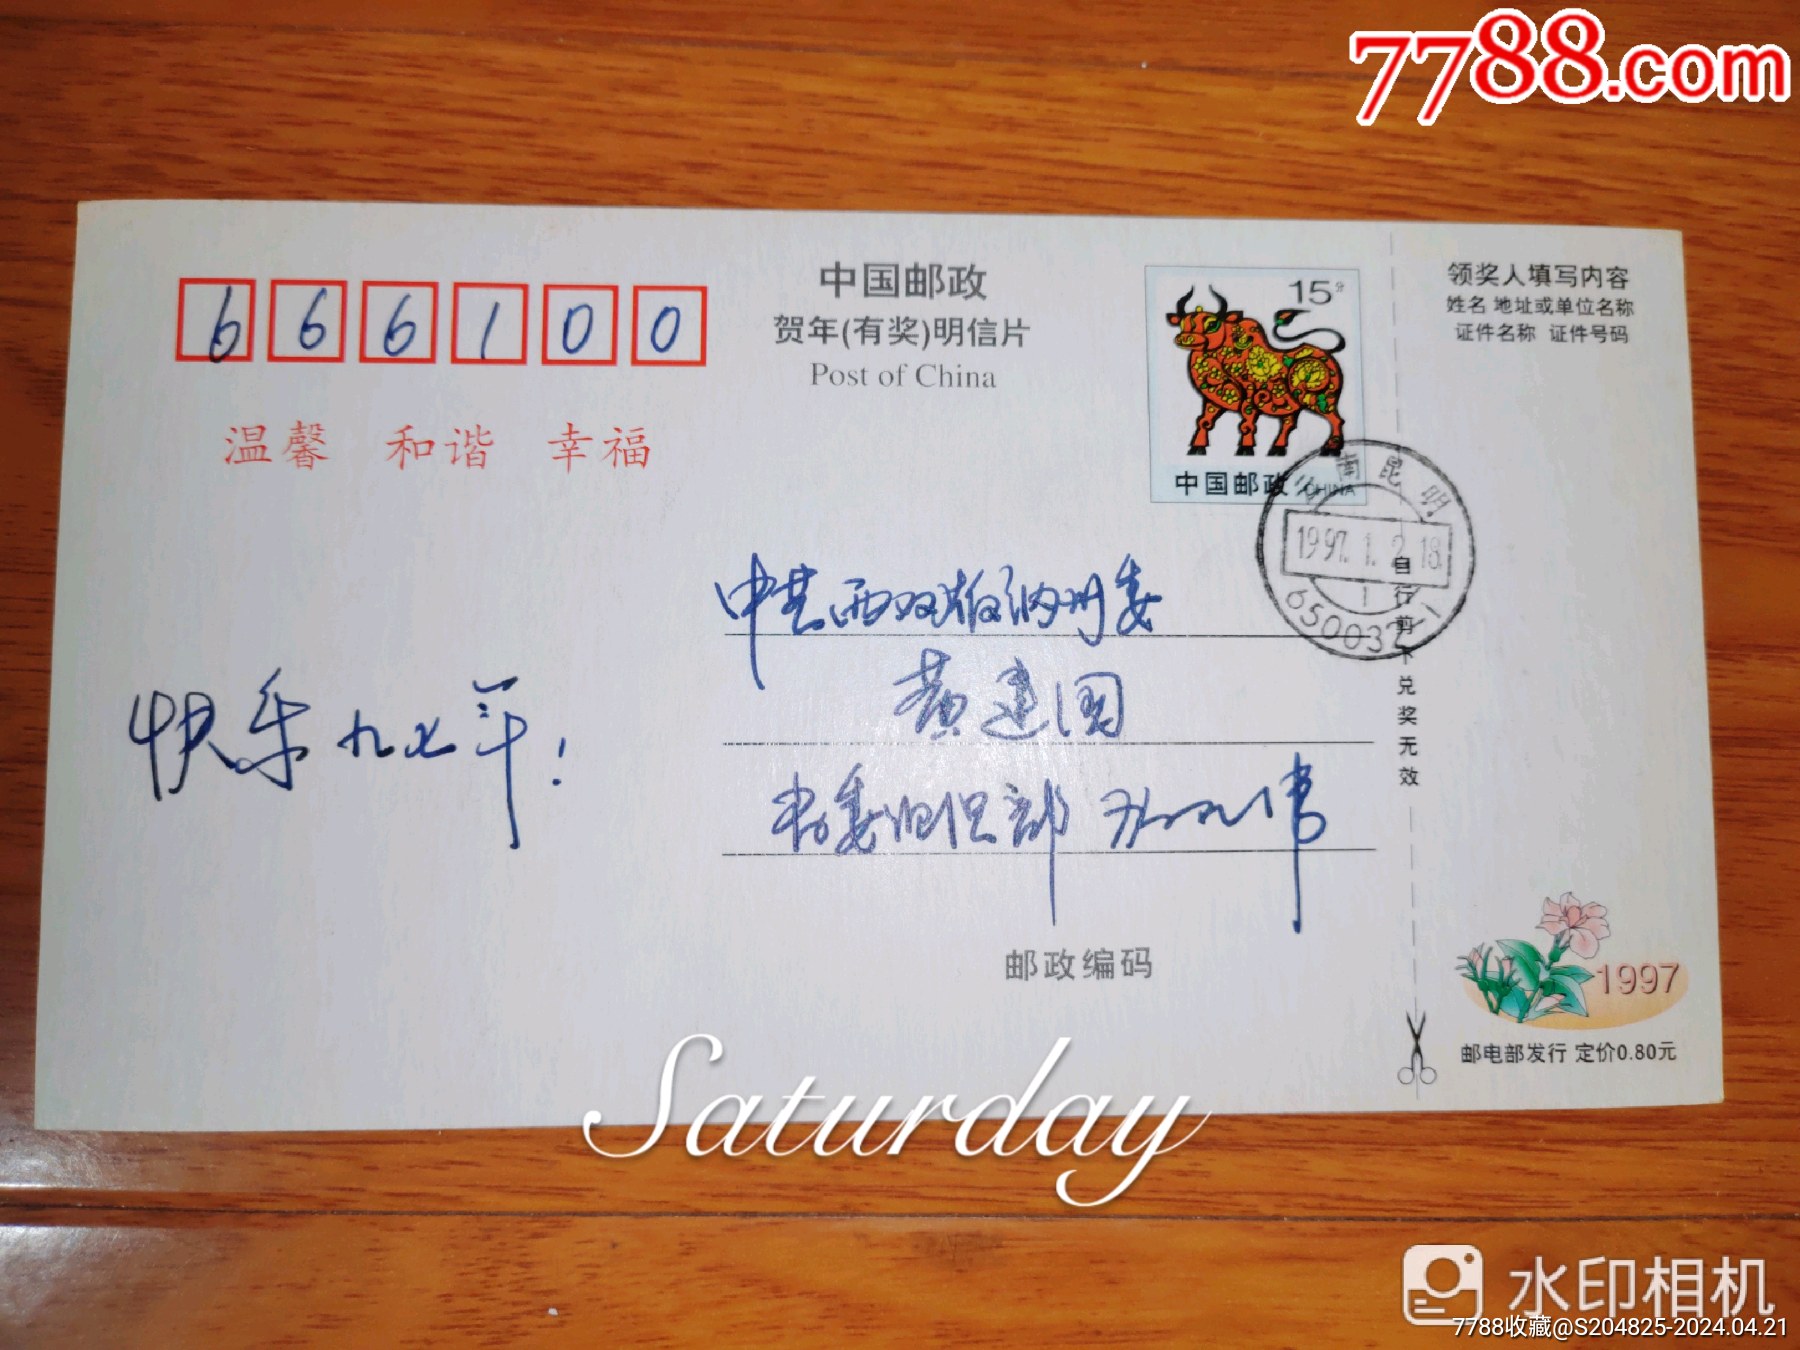 7788.com
666100
中国邮政
贺年(有奖)明信片
Post of China
15分
中国邮政 CHINA
领奖人填写内容
姓名 地址或单位名称
证件名称 证件号码
温馨 和谐 幸福
云南昆明
1997.1.2.18
650032
自行剪下兑奖无效
中共西双版纳州委
黄建国
快乐九七年!
省委组织部
邮政编码
1997
邮电部发行 定价0.80元
Saturday
水印相机
7788收藏@S204825-2024.04.21